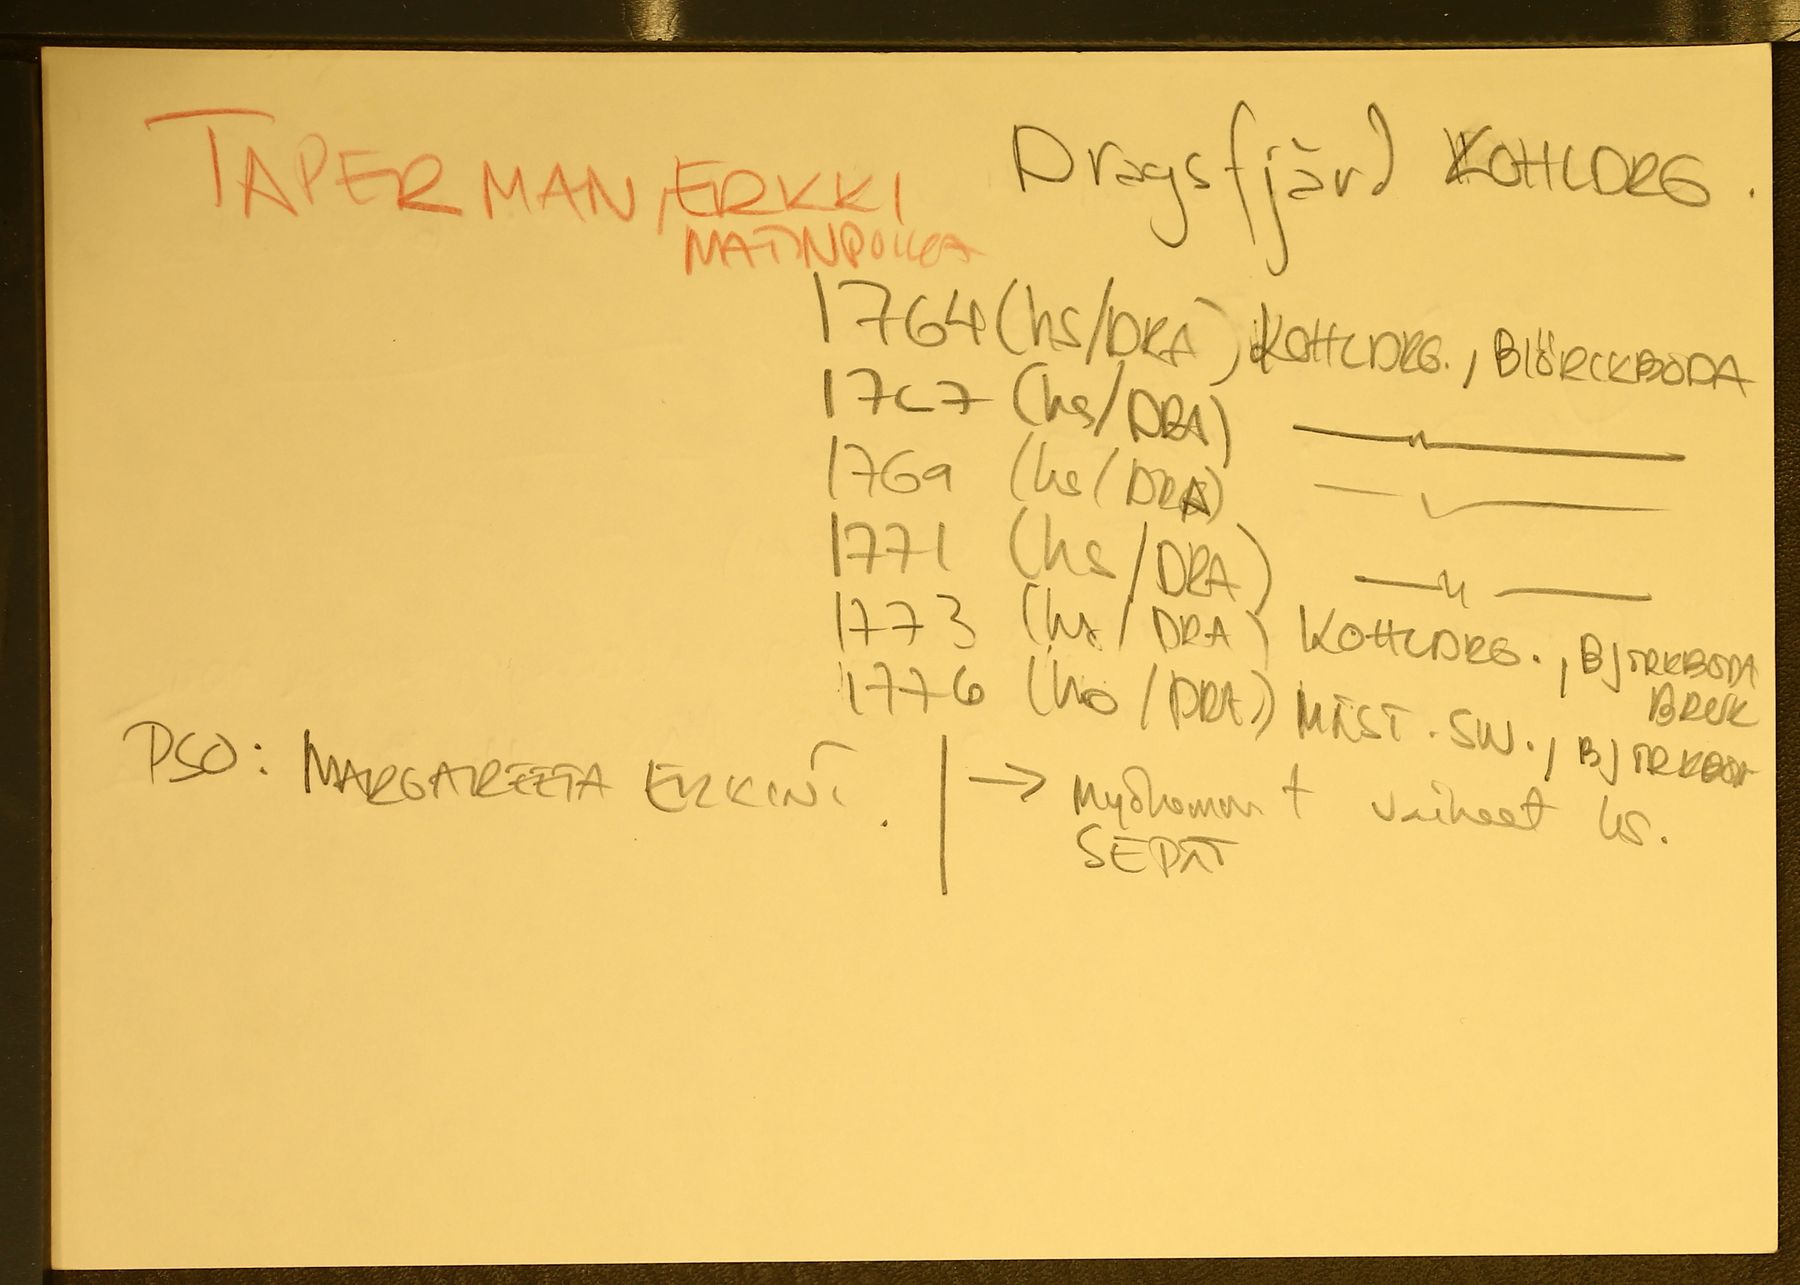 TAPERMAN, ERKKI
MATINPOIKA
Dragsfjärd KOHLDRG.
1764 (hs/DRA), KOHLDRG., BIÖRCKBODA
1767 (hs/DRA) — " —
1769 (hs/DRA) — " —
1771 (hs/DRA) — " —
1773 (hs/DRA) KOHLDRG., BJÖRKBODA
BRUK
1776 (hs/DRA) MÄST. SM., BJÖRKBOD
PSO: MARGAREETA ERKINT.
→ myöhemmät vaiheet ks.
SEPÄT